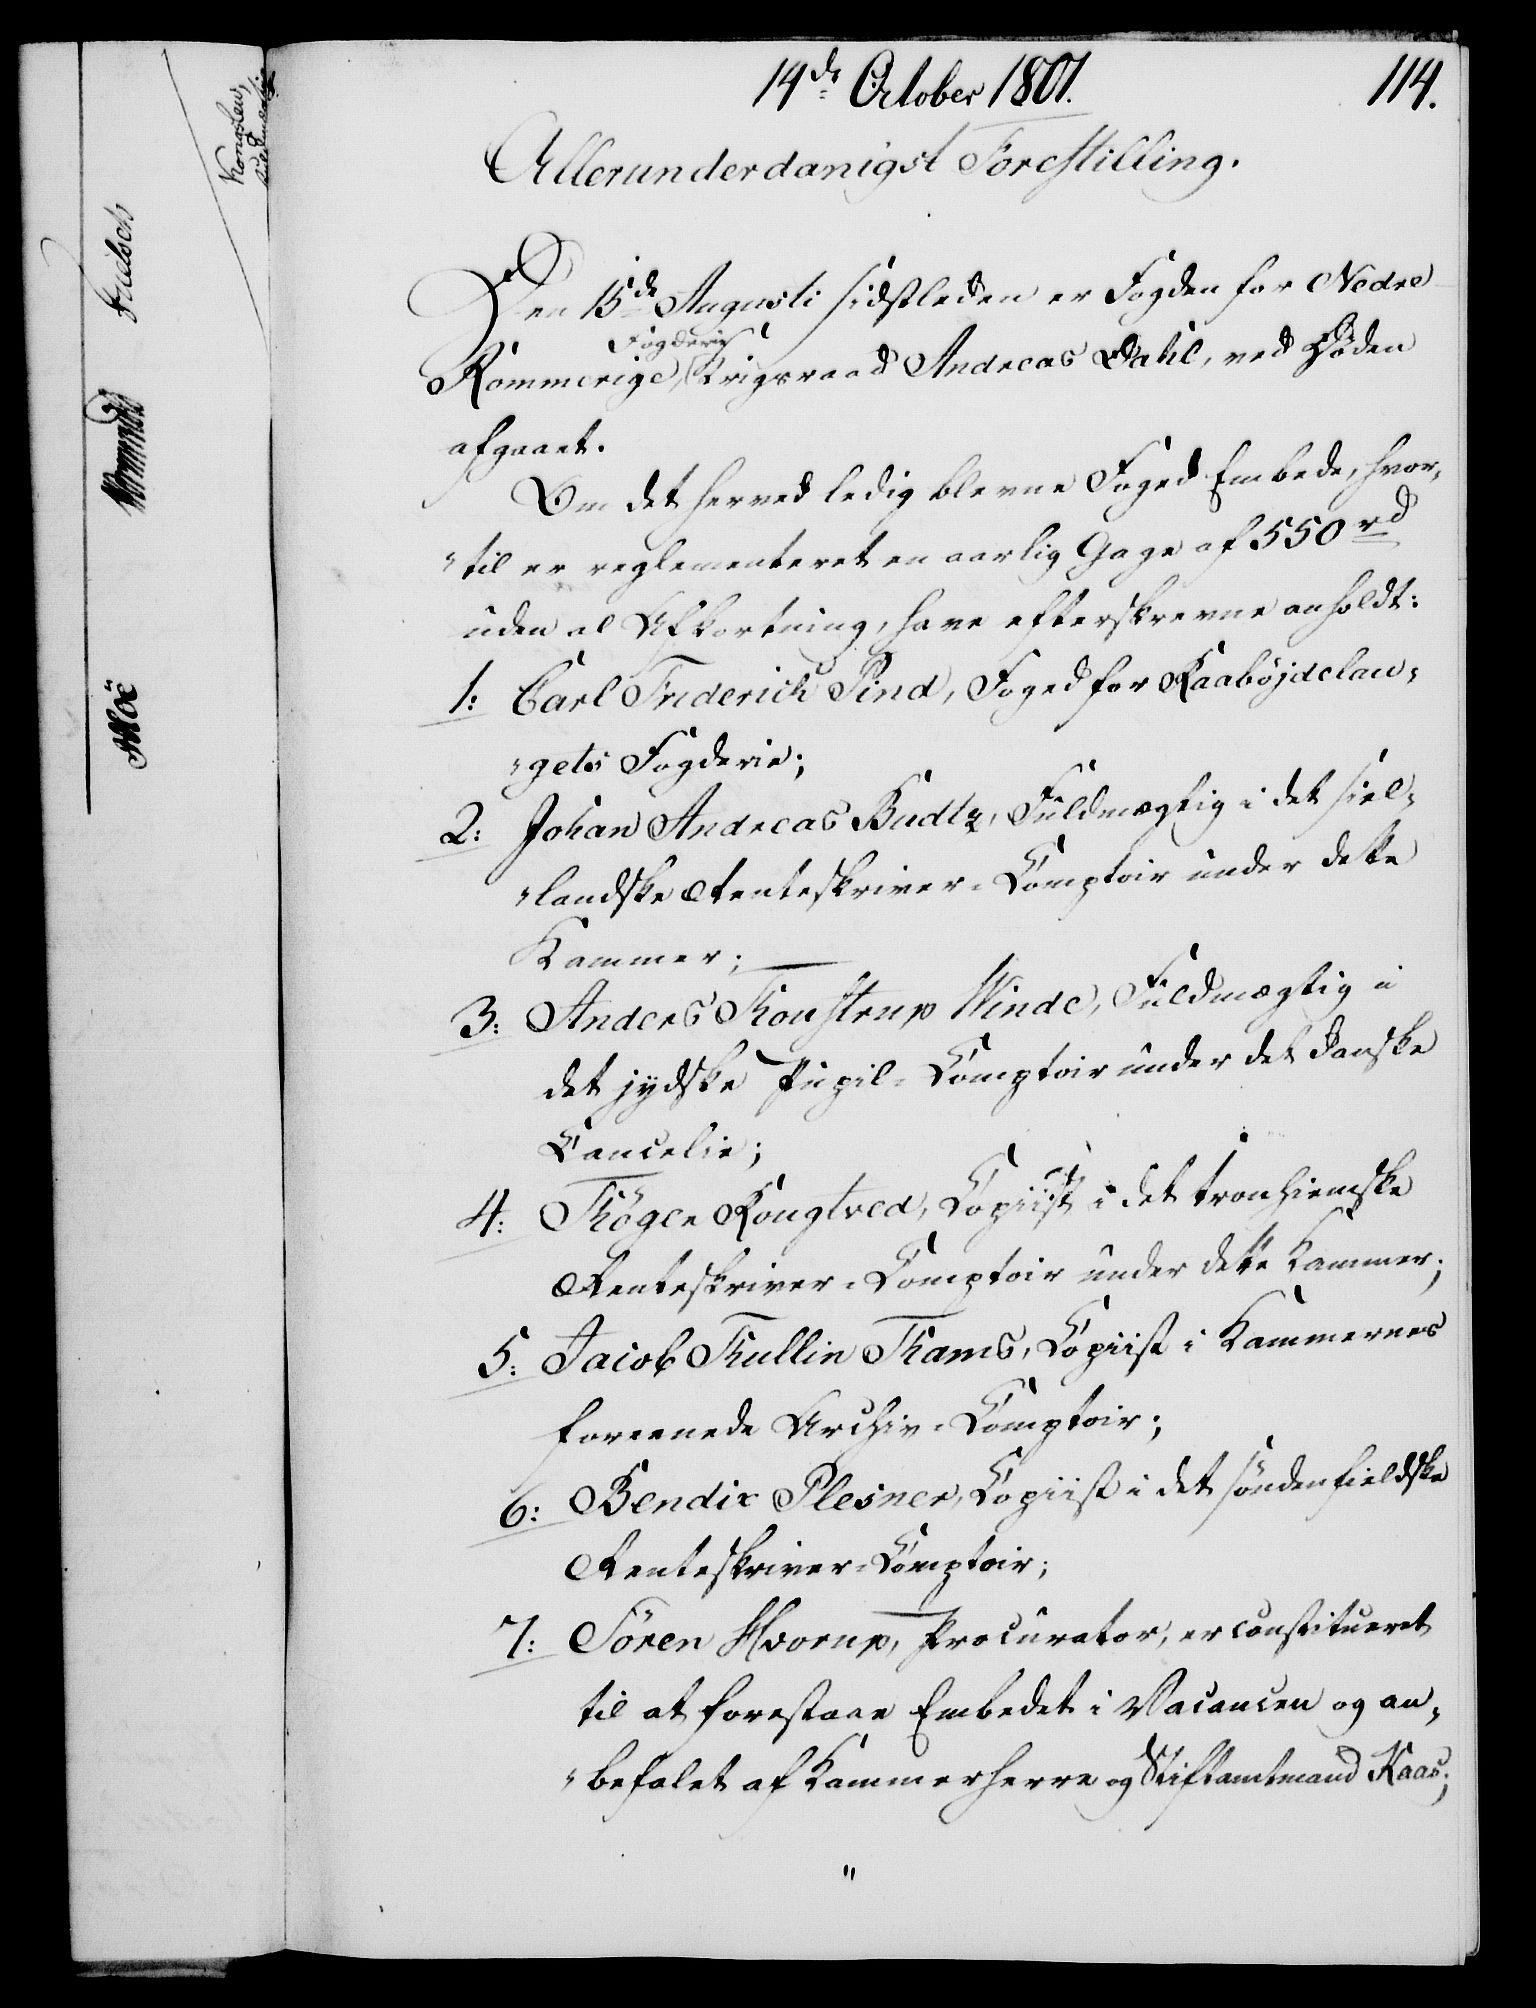 14de October 1801.
114.
Allerunderdanigst Forestilling.
Den 15de Augusti sidstleden er Fogden for Nedre
Rommerige Fogderie, Krigsraad Andreas Dahl, ved Døden
afgaaet.
Om det herved ledig blevne Foged Embede, hvor-
"til er reglementeret en aarlig Gage af 550 rd
uden al Afkortning, have efterskrevne anholdt:
1: Carl Friderich Pind, Foged for Raabøjdelau-
"gets Fogderie;
2: Johan Andreas Budtz, Fuldmægtig i det siel-
"landske Renteskriver-Comptoir under dette
Kammer;
3: Anders Thoustrup Winde, Fuldmægtig i
det jydske Pupil-Comptoir under det danske
Cancelie;
4: Thøger Kougtved, Copiist i det tronhiemske
Renteskriver-Comptoir under dette Kammer;
5: Jacob Thullin Thams, Copiist i Kammernes
foreenede Archiv-Comptoir;
6: Bendix Plesner, Copiist i det søndenfieldske
Renteskriver-Comptoir;
7: Sören Hvorup, Procurator, er constitueret
til at forestaae Embedet i Vacancen og an-
"befalet af Kammerherre og Stiftamtmand Kaas;
"
Fridsch
Wormskiold
Möe